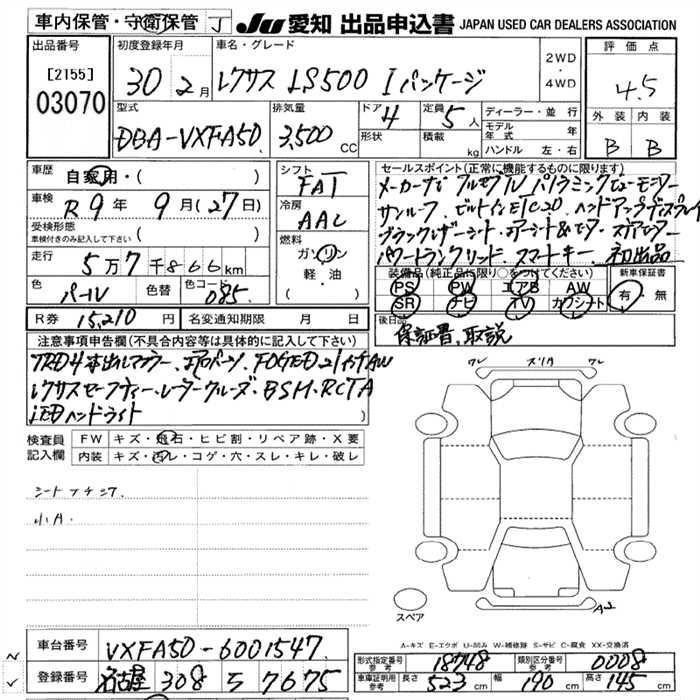 車内保管・守衛保管 J JU 愛知 出品申込書 JAPAN USED CAR DEALERS ASSOCIATION
出品番号 初度登録年月 車名・グレード 2WD・4WD 評価点
[2155] 03070 30 2月 レクサス LS500 Iパッケージ 4.5
型式 排気量 ドア 4 定員 5人 ディーラー・並行 外装 内装
DBA-VXFA50 3,500CC 形状 積載 kg モデル年式 年 B B
ハンドル 左・右
車歴 自家用・( ) シフト FAT セールスポイント(正常に機能するものに限ります)
車検 R9年9月(27日) 冷房 AAC メーカーナビ フルセグTV パノラミックビューモニター
サンルーフ ビルトインETC2.0 ヘッドアップディスプレイ
受検形態 車検付きのみ記入して下さい ( ) 燃料 ガソリン 軽・油 ( )
ブラックレザーシート エアーシート&ヒーター
パワートランクリッド スマートキー 初出品
走行 5万7千866km
色 パール 色替 色コード 085
装備品(純正品に限り○をつけてください) 新車保証書
PS PW エアB AW 有・無
SR ナビ TV カワシート
R券 15,210円 名変通知期限 月 日
後日品 保証書、取説
注意事項申告欄(不具合内容等は具体的に記入して下さい)
TRD4本出しマフラー・エアロパーツ・FOGED21インチAW
レクサスセーフティー・レーダークルーズ・BSM・RCTA
LEDヘッドライト
ワレ スリA ワレ
検査員記入欄 FW キズ・飛石・ヒビ割・リペア跡・X要
内装 キズ・汚レ・コゲ・穴・スレ・キレ・破レ
シート
小A
スペア
A2
A-キズ E-エクボ U-凹み W-補修跡 S-サビ C-腐食 XX-交換済
車台番号 VXFA50-6001547
形式指定番号 参考 18748 類別区分番号 参考 0008
登録番号 名古屋 308 ら 7675
車庫証明用 参考 長さ 523cm 幅 190cm 高さ 145cm